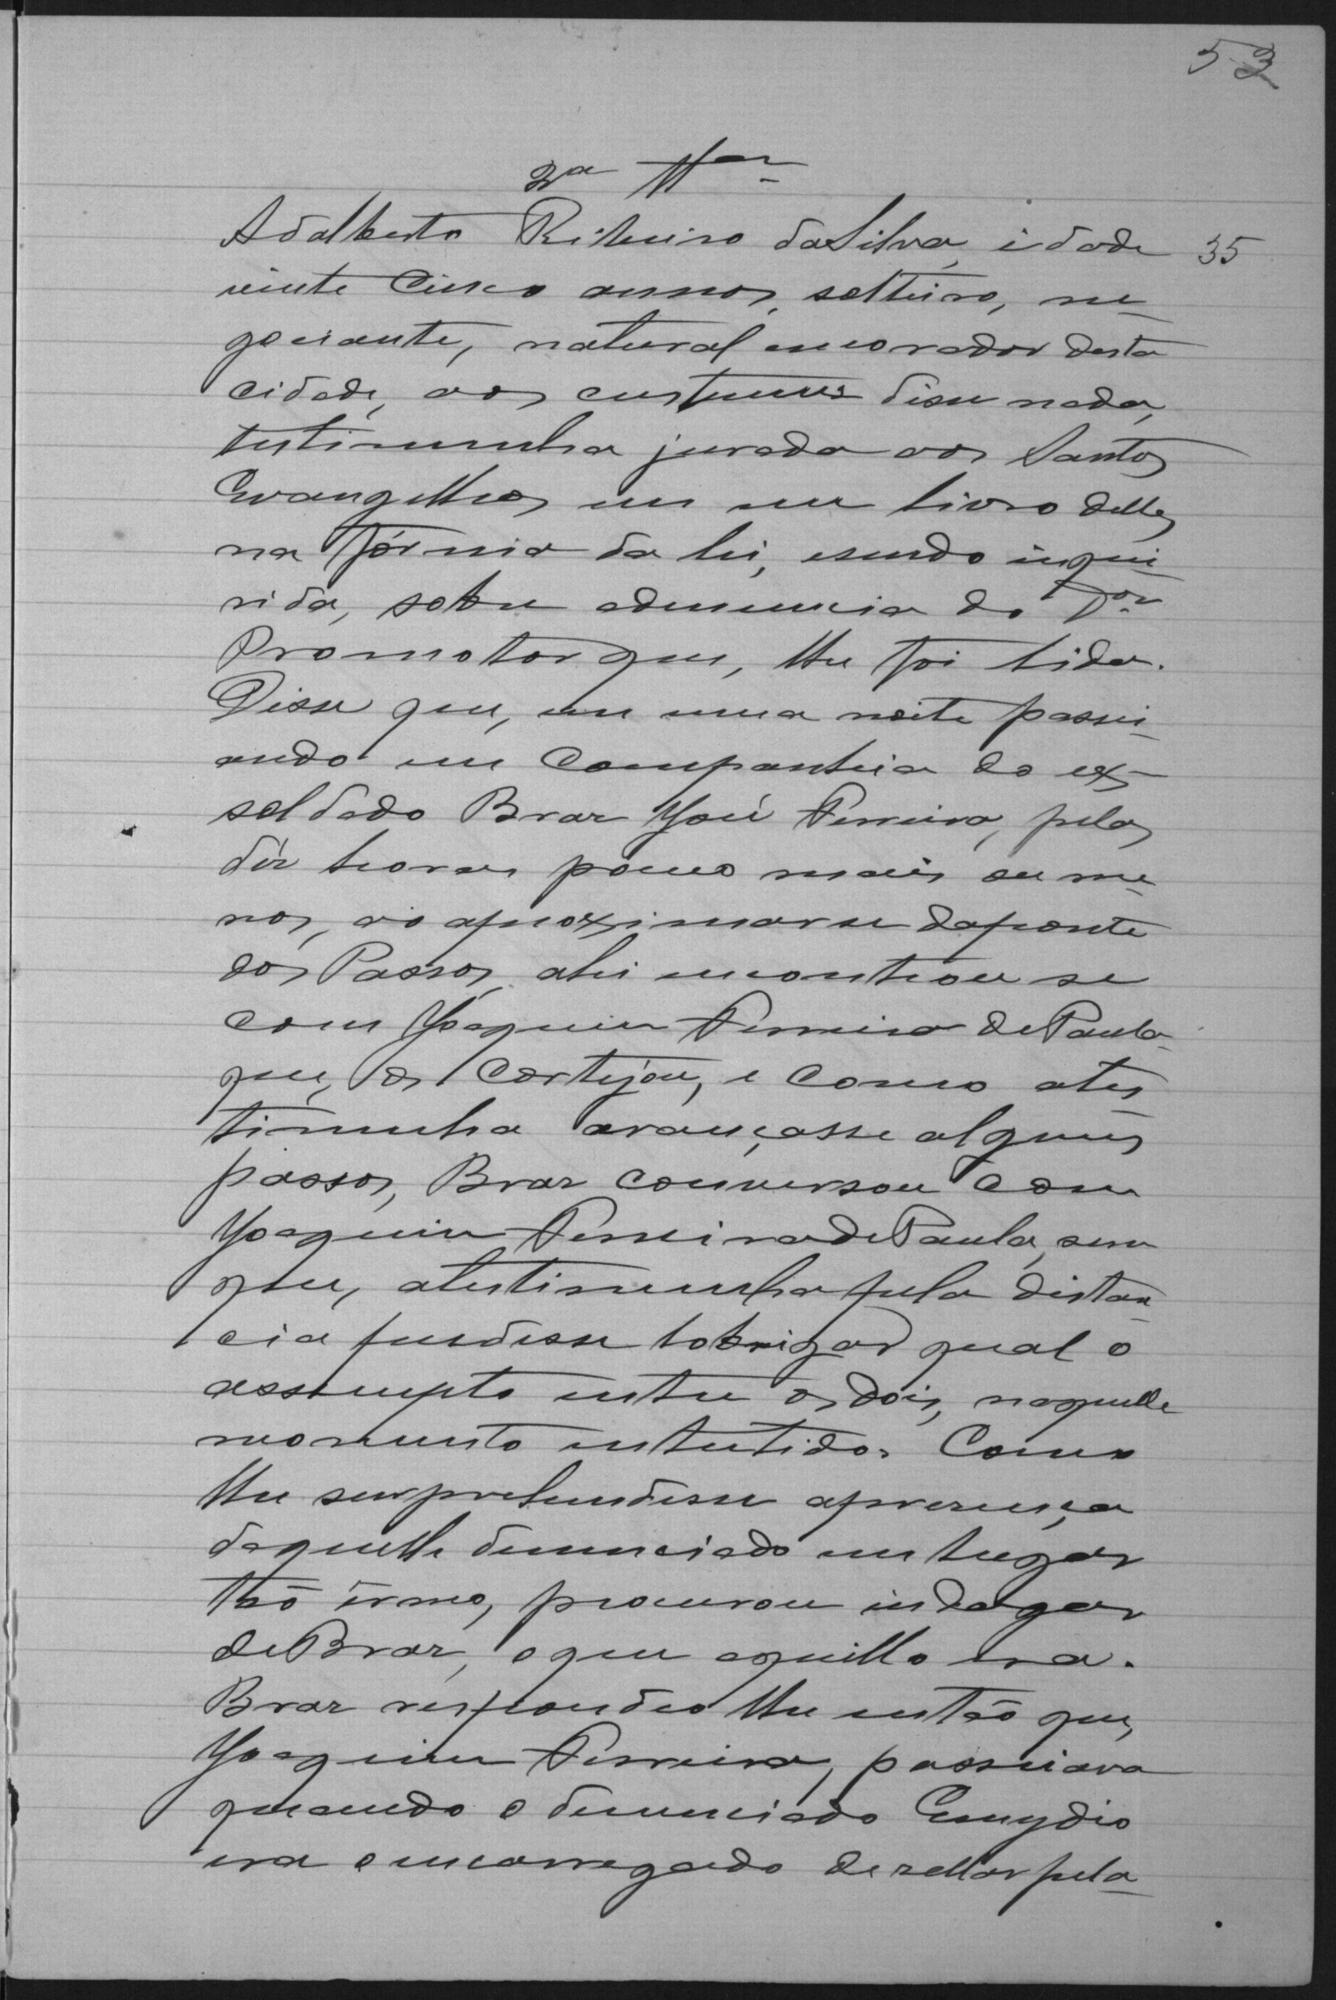 53
2ª Tª
Adalberto Ribeiro da Silva, idade 35
vinte cinco annos, solteiro, ne-
gociante, natural e morador desta
cidade, aos custumes disse nada,
testimunha jurada aos Santos
Evangelhos em um livro delles
na fórma da lei, e sendo inqui-
rida, sobre a denuncia do Dor
Promotor que, lhe foi lida.
Disse que, em uma noite passei-
ando em companhia do ex-
soldado Braz José Ferreira, pelas
déz horas pouco mais ou me-
nos, ao aproximar se da ponte
dos Passos, ahi encontrou se
com Joaquim Ferreira de Paula
que, os cortejou, e como a tes-
timunha avançasse alguns
passos, Braz conversou com
Joaquim Ferreira de Paula, sem
que, a testimunha pela distan-
cia pudesse lobrigar qual o
assumpto entre os dois, naquelle
momento entretido. Como
lhe surprehendesse a presença
daquelle denunciado em lugar
tão êrmo, procurou indagar
de Braz, o que aquillo era.
Braz respondeo lhe então que,
Joaquim Ferreira, passeiava
quando o denunciado Emydio
era o encarregado de zellar pela